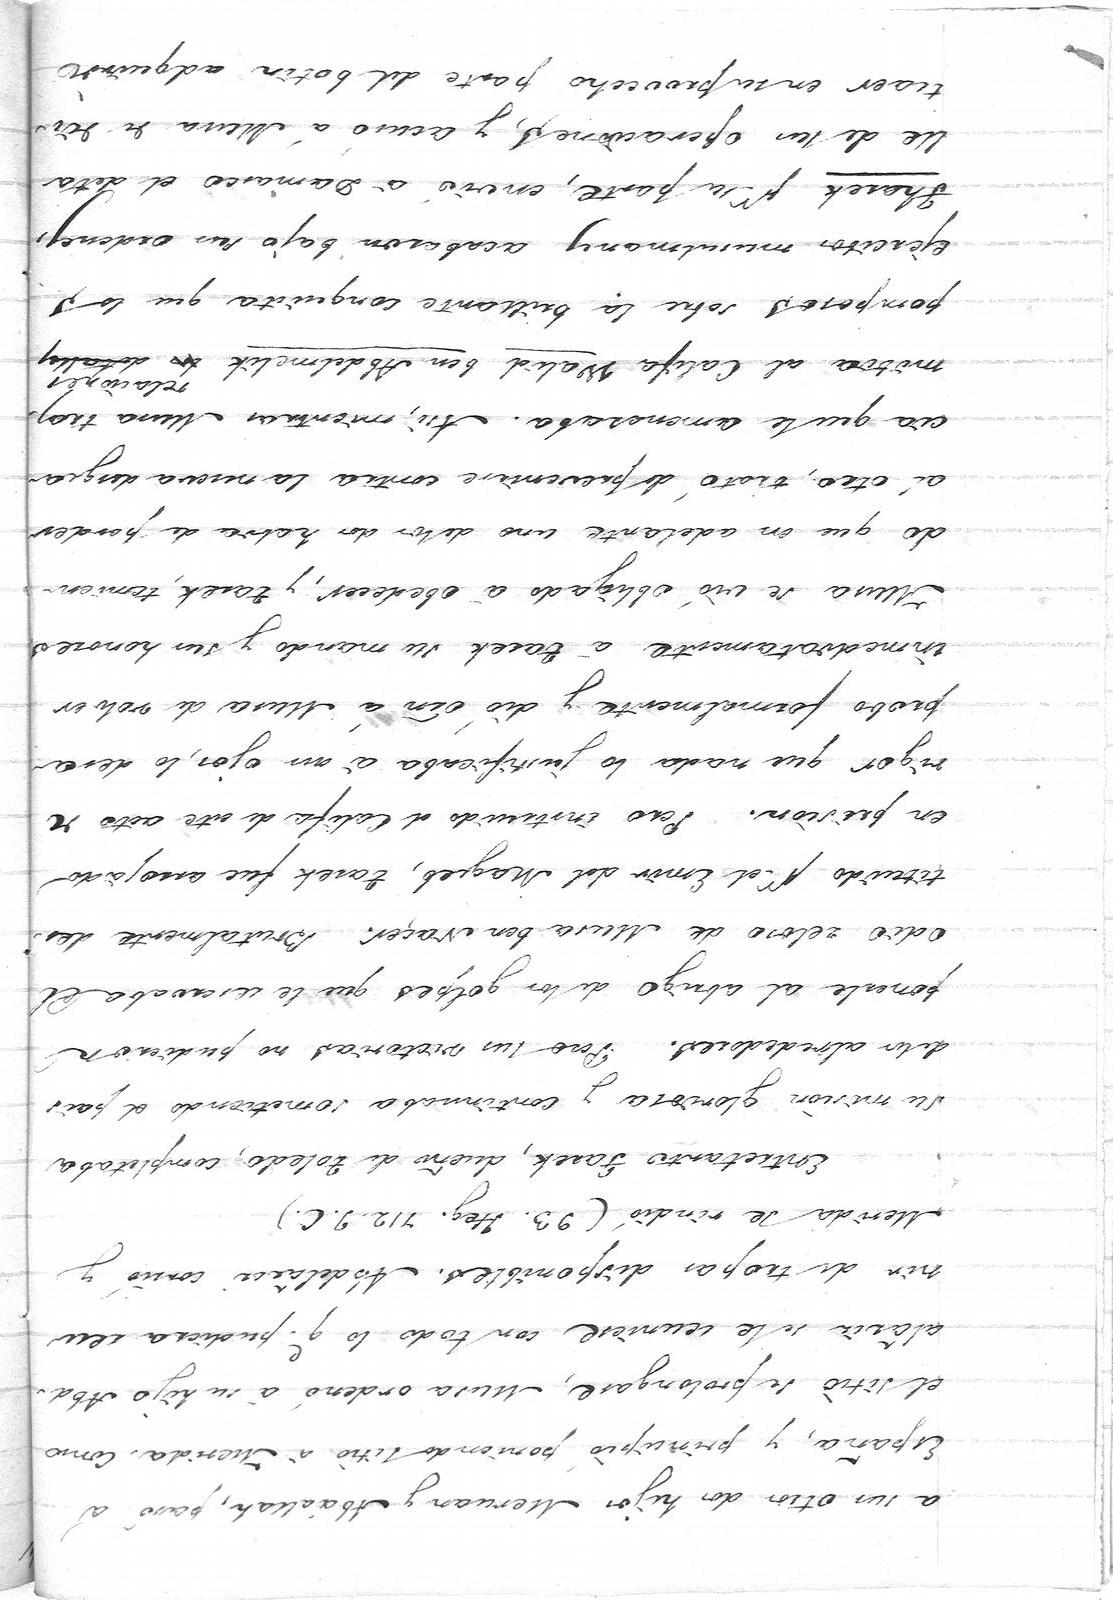 a sus otros dos hijos Meruan y Abdallah, pasó á
España, y principió poniendo sitio á Merida. Como
el sitio se prolongase, Musa ordenó á su hijo Abd-
alâsis se le reuniese con todo lo q.e pudiera reu
nir de tropas disponibles. Abdelâsis corrió y
Merida se rindió (93. Heg. 712. J. C.)
Entretanto Tarek, dueño de Toledo, completaba
su misión gloriosa y continuaba sometiendo el pais
de los alrededores. Pero sus victorias no pudieron
ponerle al abrigo de los golpes que le reservaba el
odio zeloso de Musa ben Naçer. Brutalmente des-
tituido p.r el Emir del Magreb, Tarek fue arrojado
en prisión. Pero instruido el Califa de este acto de
rigor que nada lo justificaba á sus ojos, lo desa-
probó formalmente y dió órn á Musa de volver
inmediatamente á Tarek su mando y sus honores.
Musa se vió obligado á obedecer, y Tarek, temien-
do que en adelante uno de los dos habra de perder
á otro, trató de prevenirse contra la nueva desgra-
cia que le amenazaba. Asi, mientras Musa tras-
relaciones
mitia al Califa Walid ben Abdelmelik los detalles
pomposas sobre la brillante conquista que los
ejércitos musulmanes acabaron bajo sus ordenes,
Tharek p.r su parte, envió á Damasco el deta
lle de sus operaciones, y acusó á Musa de dis-
traer en su provecho parte del botín adquirido